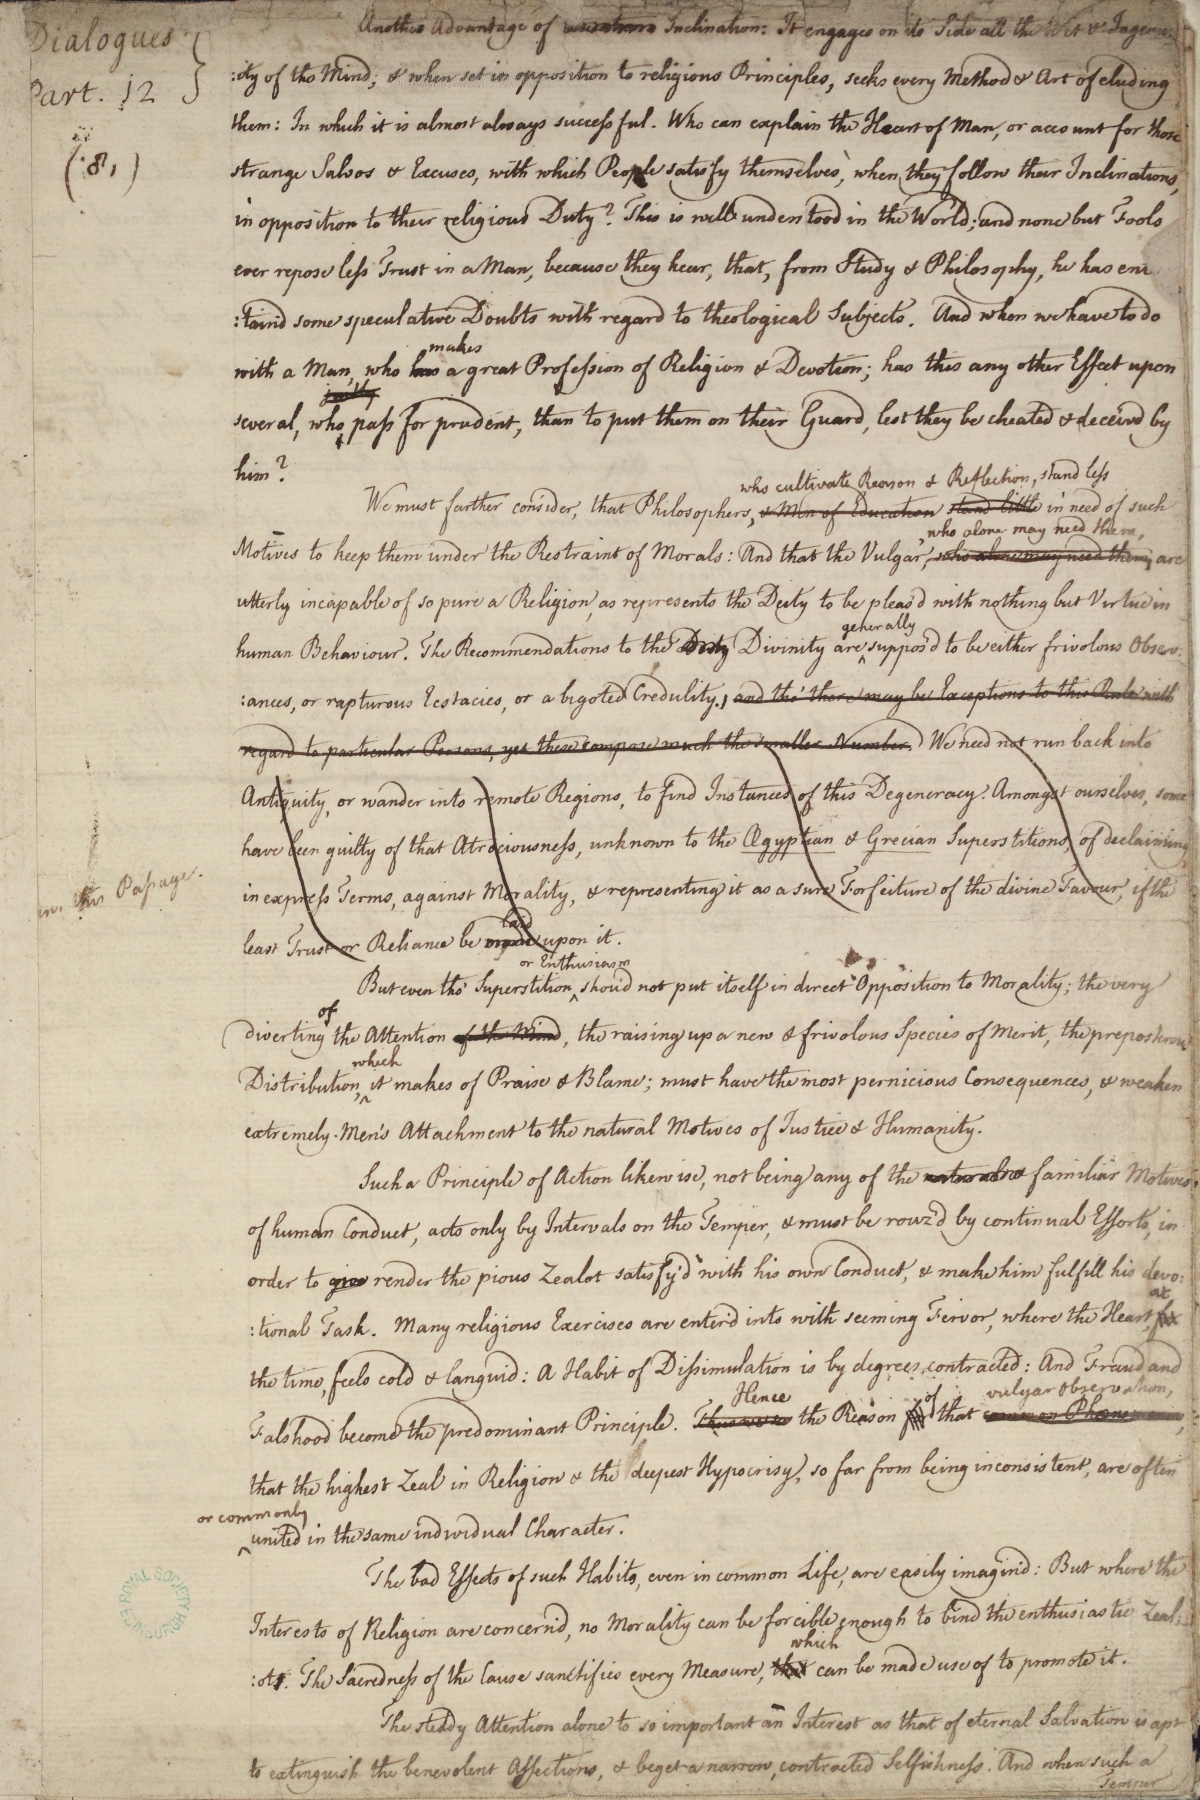 Dialogues
Part. 12
(81)
Another Advantage of Inclination: It engages on its Side all the Wit & Ingenu:
:ity of the Mind; & when set in opposition to religious Principles, seeks every Method & Art of eluding
them: In which it is almost always successful. Who can explain the Heart of Man, or account for those
strange Salvos & Excuses, with which People satisfy themselves, when they follow their Inclinations,
in opposition to their religious Duty? This is well understood in the World; and none but Fools
ever repose less Trust in a Man, because they hear, that, from Study & Philosophy, he has en
:taind some speculative Doubts with regard to theological Subjects. And when we have to do
makes
with a Man, who has a great Profession of Religion & Devotion; has this any other Effect upon
justly
several, who pass for prudent, than to put them on their Guard, lest they be cheated & deceivd by
him?
who cultivate Reason & Reflection, stand less
We must farther consider, that Philosophers, & Men of Education stand little in need of such
who alone may need them,
Motives to keep them under the Restraint of Morals: And that the Vulgar, who alone may need them, are
utterly incapable of so pure a Religion, as represents the Deity to be pleas'd with nothing but Virtue in
generally
human Behaviour. The Recommendations to the Deity Divinity are suppos'd to be either frivolous Observ:
:ances, or rapturous Ecstacies, or a bigoted Credulity; and tho' there may be Exceptions to this Rule with
regard to particular Persons, yet these compose much the smaller Number. We need not run back into
Antiquity, or wander into remote Regions, to find Instances of this Degeneracy. Amongst ourselves, some
have been guilty of that Atrociousness, unknown to the Ægyptian & Grecian Superstitions, of declaiming,
in express Terms, against Morality, & representing it as a sure Forfeiture of the divine Favour, if the
in this Passage.
laid
least Trust or Reliance be made upon it.
or Enthusiasm
But even tho' Superstition shoud not put itself in direct Opposition to Morality; the very
of
diverting the Attention of the Mind, the raising up a new & frivolous Species of Merit, the preposterous
which
Distribution, it makes of Praise & Blame; must have the most pernicious Consequences, & weaken
extremely Men's Attachment to the natural Motives of Justice & Humanity.
Such a Principle of Action likewise, not being any of the natural & familiar Motives
of human Conduct, acts only by Intervals on the Temper, & must be rouz'd by continual Efforts, in
order to give render the pious Zealot satisfy'd with his own Conduct, & make him fulfill his devo:
at
:tional Task. Many religious Exercises are enterd into with seeming Fervor, where the Heart, for
the time, feels cold & languid: A Habit of Dissimulation is by degrees contracted: And Fraud and
Hence of vulgar Observation,
Falshood become the predominant Principle. the Reason that common Phænomenon,
that the highest Zeal in Religion & the deepest Hypocrisy, so far from being inconsistent, are often
or commonly
united in the same individual Character.
The bad Effects of such Habits, even in common Life, are easily imagind: But where the
Interests of Religion are concernd, no Morality can be forcible enough to bind the enthusiastic Zeal:
which
:ot. The Sacredness of the Cause sanctifies every Measure, that can be made use of to promote it.
The steddy Attention alone to so important an Interest as that of eternal Salvation is apt
to extinguish the benevolent Affections, & beget a narrow, contracted Selfishness. And when such a
Temper
ROYAL SOCIETY